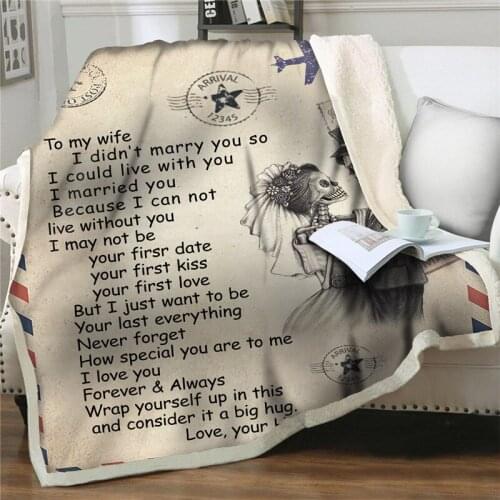 POST O
ARRIVAL
12345
To my wife
I didn't marry you so
I could live with you
I married you
Because I can not
live without you
I may not be
your firsr date
your first kiss
your first love
But I just want to be
Your last everything
Never forget
How special you are to me
I love you
Forever & Always
Wrap yourself up in this
and consider it a big hug.
Love, your
ARRIVAL
12345